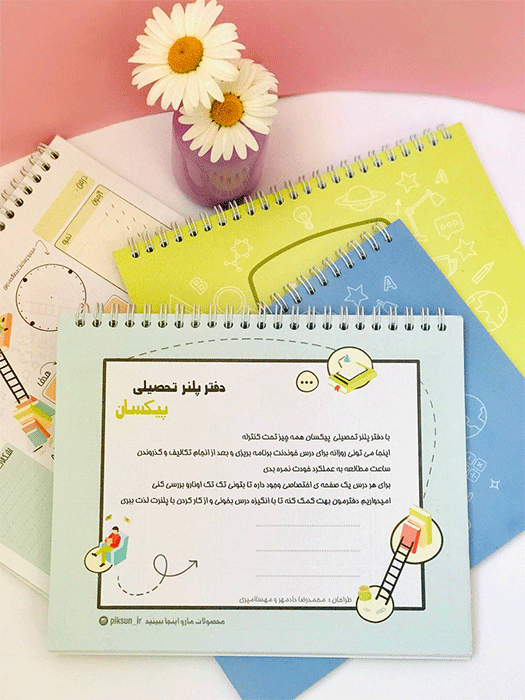 دفتر پلنر تحصیلی
پیکسان
با دفتر پلنر تحصیلی پیکسان همه چیز تحت کنترله
اینجا می تونی روزانه برای درس خوندنت برنامه بریزی و بعد از انجام تکالیف و گذروندن
ساعت مطالعه به عملکرد خودت نمره بدی
برای هر درس یک صفحه ی اختصاصی وجود داره تا بتونی تک تک اونارو بررسی کنی
امیدواریم دفترمون بهت کمک کنه تا با انگیزه درس بخونی و از کار کردن با پلنرت لذت ببری
طراحان : محمدرضا دادمهر و مهسا امیری
محصولات مارو اینجا ببینید piksun_ir